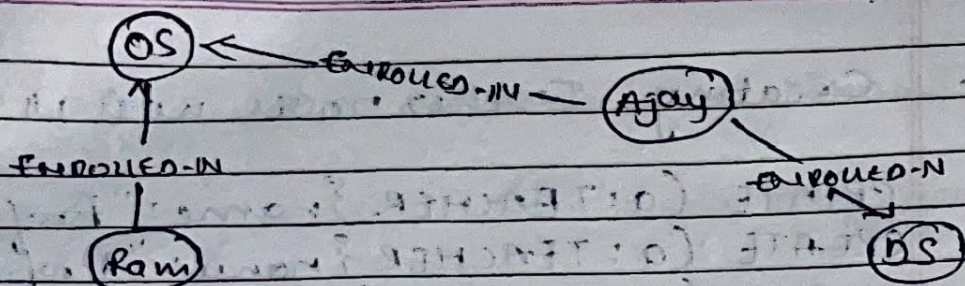 OS
ENROLLED-IN
Ajay
ENROLLED-IN
ENROLLED-N
Ram
DS